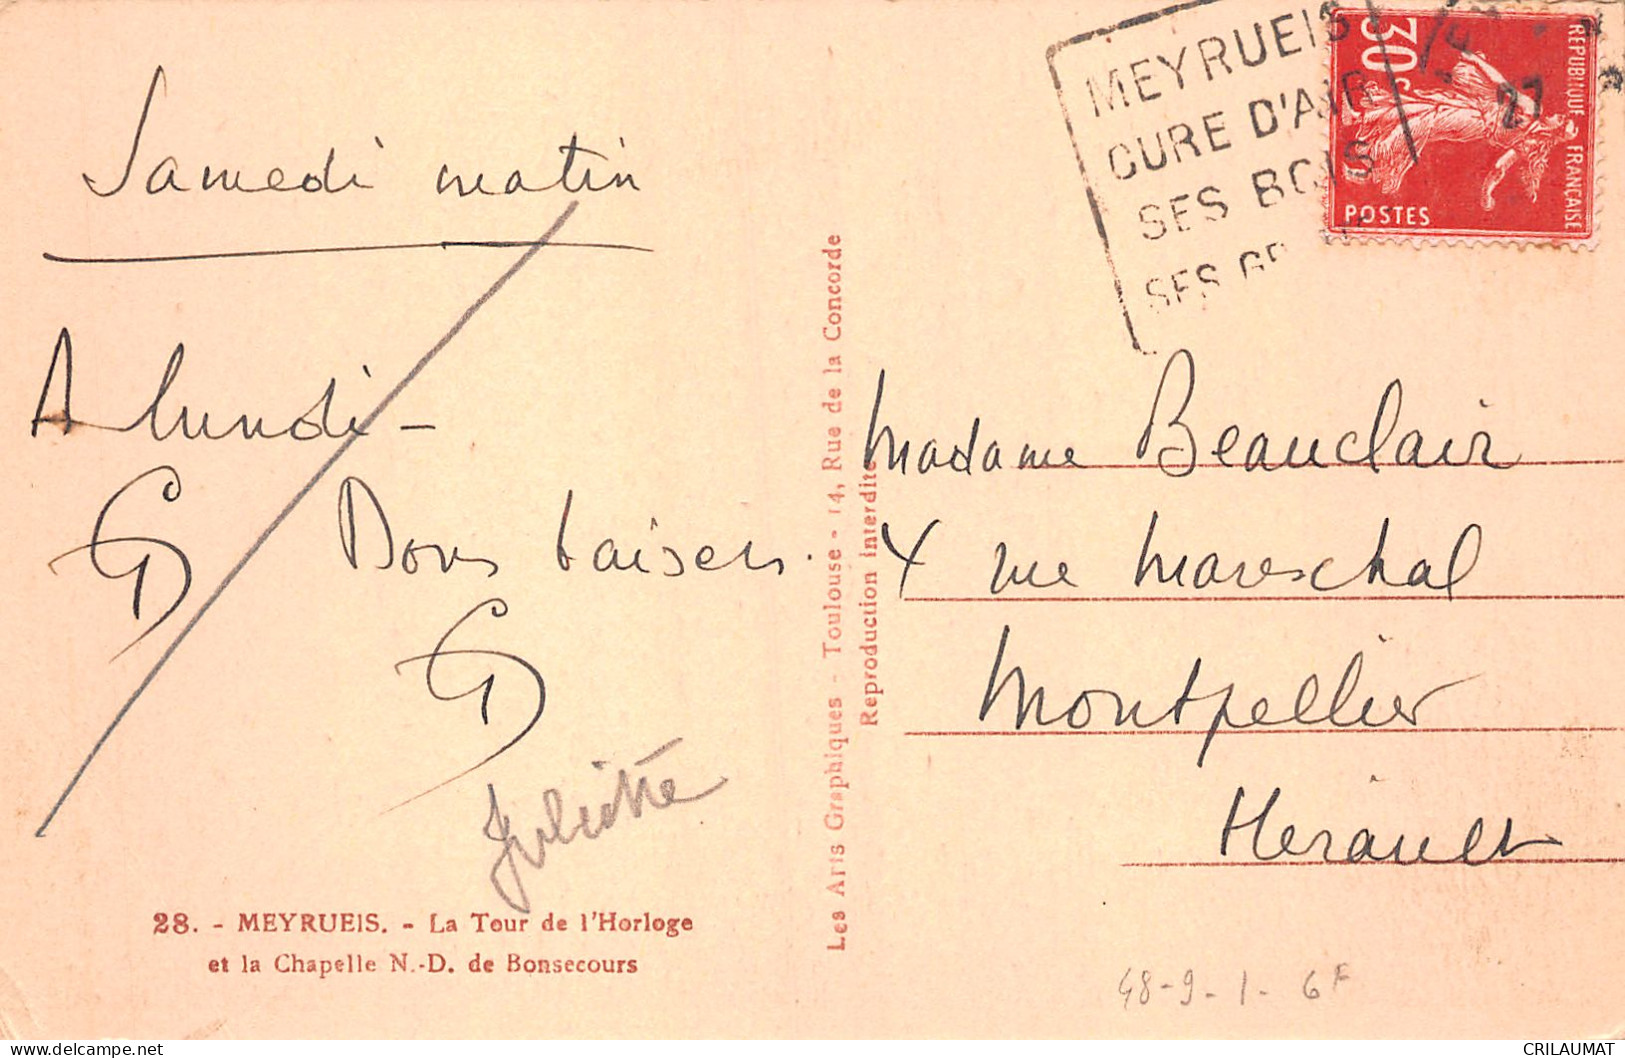 Samedi matin
A lundi -
Bons baisers.
Juliette
28. - MEYRUEIS. - La Tour de l'Horloge
et la Chapelle N.-D. de Bonsecours
Les Arts Graphiques - Toulouse - 14, Rue de la Concorde
Reproduction interdite
MEYRUEIS
CURE D'AIR
SES BOIS
SES
30c
POSTES
REPUBLIQUE FRANÇAISE
27
Madame Beauclair
4 rue Mareschal
Montpellier
Herault
48-9-1- 6F
CRILAUMAT